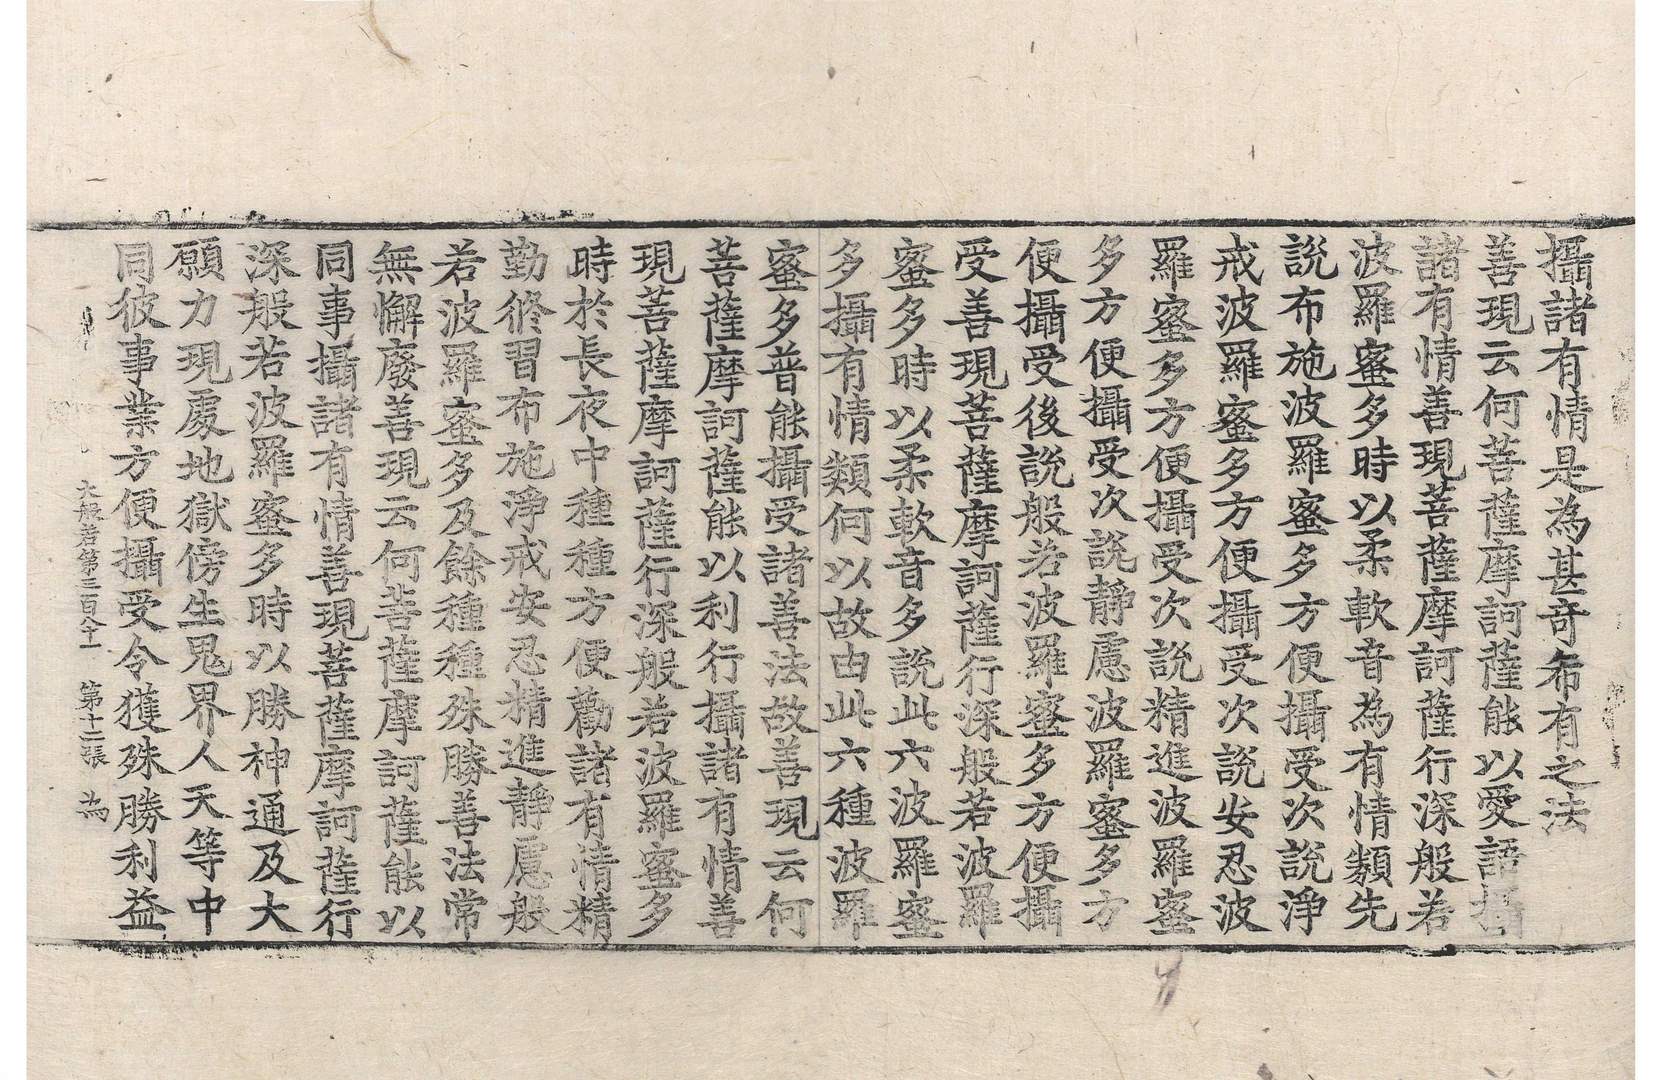 攝諸有情是為甚奇希有之法
善現云何菩薩摩訶薩能以愛語攝
諸有情善現菩薩摩訶薩行深般若
波羅蜜多時以柔軟音為有情類先
說布施波羅蜜多方便攝受次說淨
戒波羅蜜多方便攝受次說安忍波
羅蜜多方便攝受次說精進波羅蜜
多方便攝受次說靜慮波羅蜜多方
便攝受後說般若波羅蜜多方便攝
受善現菩薩摩訶薩行深般若波羅
蜜多時以柔軟音多說此六波羅蜜
多攝有情類何以故由此六種波羅
蜜多普能攝受諸善法故善現云何
菩薩摩訶薩能以利行攝諸有情善
現菩薩摩訶薩行深般若波羅蜜多
時於長夜中種種方便勸諸有情精
勤修習布施淨戒安忍精進靜慮般
若波羅蜜多及餘種種殊勝善法常
無懈廢善現云何菩薩摩訶薩能以
同事攝諸有情善現菩薩摩訶薩行
深般若波羅蜜多時以勝神通及大
願力現處地獄傍生鬼界人天等中
同彼事業方便攝受令獲殊勝利益
大般若第三百八十一 第十二張 為